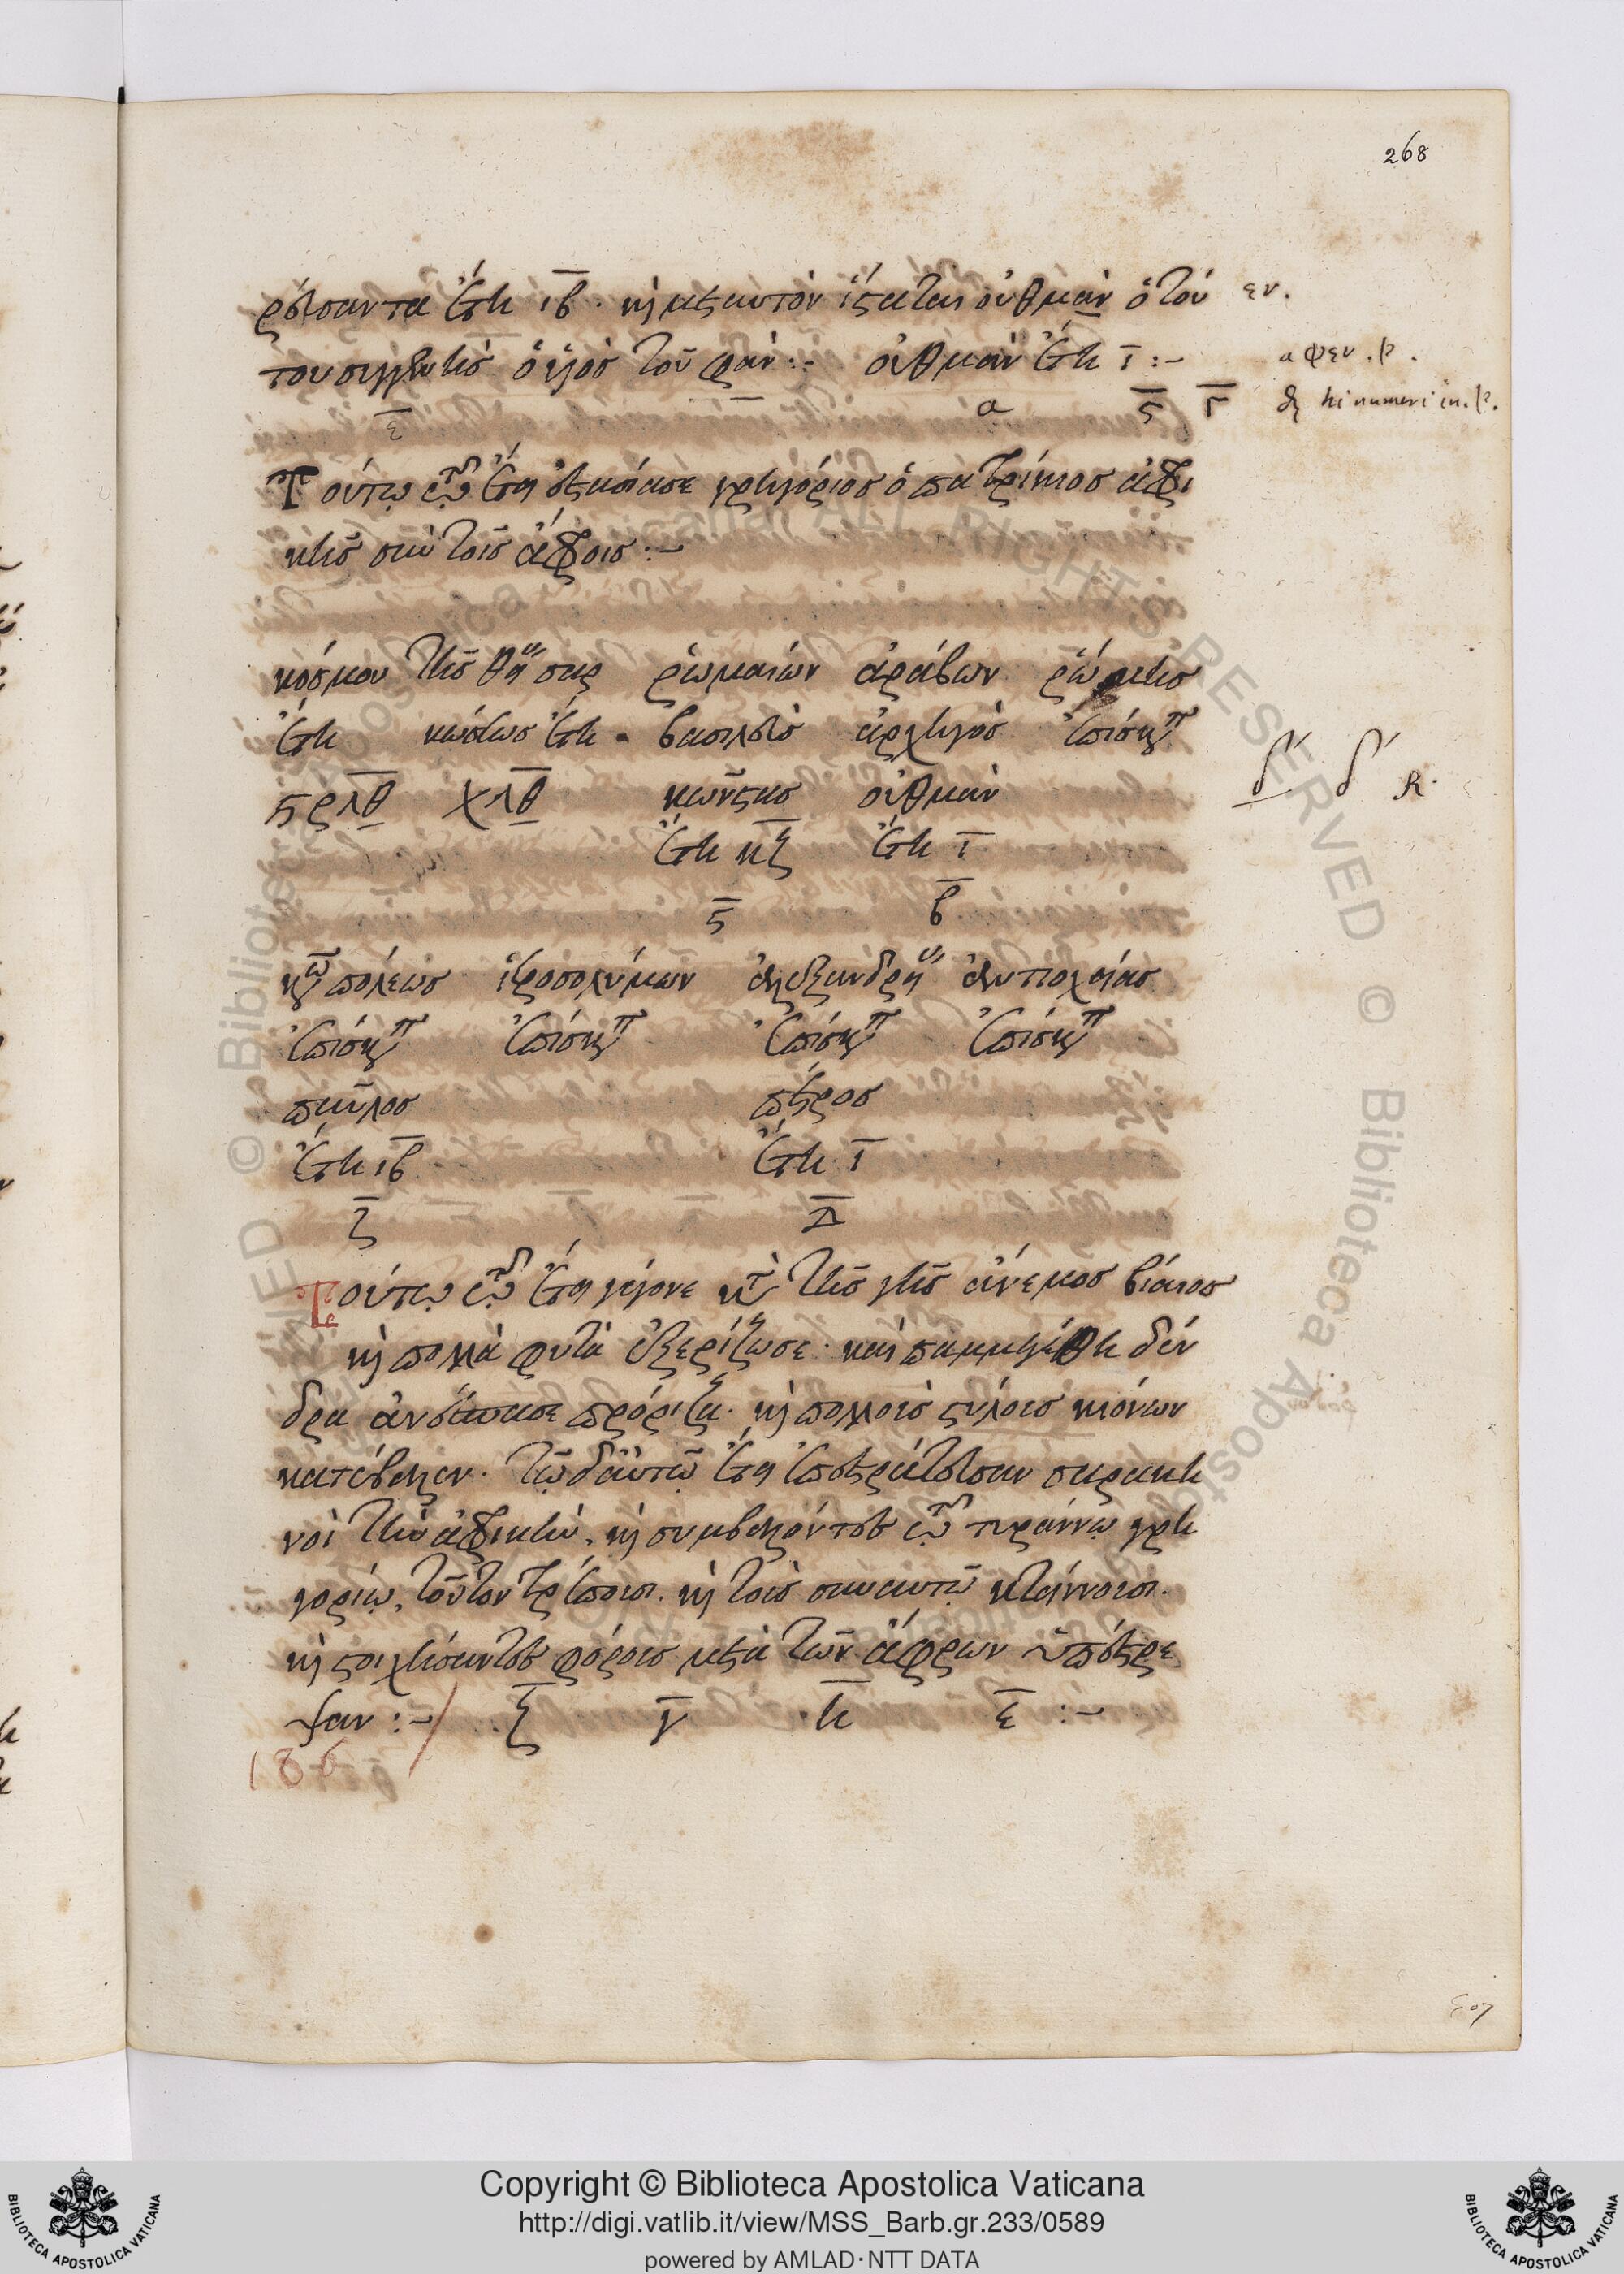 268
ρεύσαντα ἔτη ιβ. καὶ μετ αυτὸν ἵσταται οὐθμὰν ὁ τοῦ εν.
του συγγενὴς ὁ υἱὸσ τοῦ φὰν :- οὐθμὰν ἔτη ι :- α φεν. p.
ε α ς γ hi numeri in. p.
Τούτῳ τῷ ἔτει ἐστασίασε γρηγόριοσ ὁ πατρίκιοσ ἀφρι
κῆσ σὺν τοῖσ ἄφροισ :-
κόσμου τῆσ θείασ σαρ ῥωμαίων ἀράβων ῥώμησ
ἔτη κώσεωσ ἔτη. βασιλεὺσ ἀρχηγὸσ ἐπίσκοπ
ϛρλθ χλθ κώνστασ οὐθμὰν δ´ δ´ R.
ἔτη κζ ἔτη ι
ς β
κων πόλεωσ ἱεροσολύμων ἀλεξανδρείασ ἀντιοχείασ
ἐπίσκοπ ἐπίσκοπ ἐπίσκοπ ἐπίσκοπ
παῦλοσ πέτροσ
ἔτη ιβ ἔτη ι
ζ Δ
Τούτῳ τῷ ἔτει γέγονε κατὰ τῆσ γῆσ ἄνεμοσ βίαιοσ
καὶ πολλὰ φυτὰ ἐξερίζωσε. καὶ παμμεγέθη δέν
δρα ἀνέσπασε πρόριζα. καὶ πολλοὺσ στύλουσ κιόνων
κατέβαλεν. τῷ δ αὐτῷ ἔτει ἐπεστράτευσαν σαρακη
νοὶ τὴν ἀφρικὴν, καὶ συμβαλόντεσ τῷ τυράννῳ γρη
γορίῳ, τοῦτον τρέπουσι. καὶ τοὺσ σὺν αυτῷ κτείννουσι.
καὶ στοιχήσαντεσ φόρουσ μετὰ τῶν ἄφρων ὑπέστρε
ψαν :- ζ γ η ε :-
186
507
Copyright © Biblioteca Apostolica Vaticana
http://digi.vatlib.it/view/MSS_Barb.gr.233/0589
powered by AMLAD·NTT DATA
BIBLIOTECA APOSTOLICA VATICANA
BIBLIOTECA APOSTOLICA VATICANA